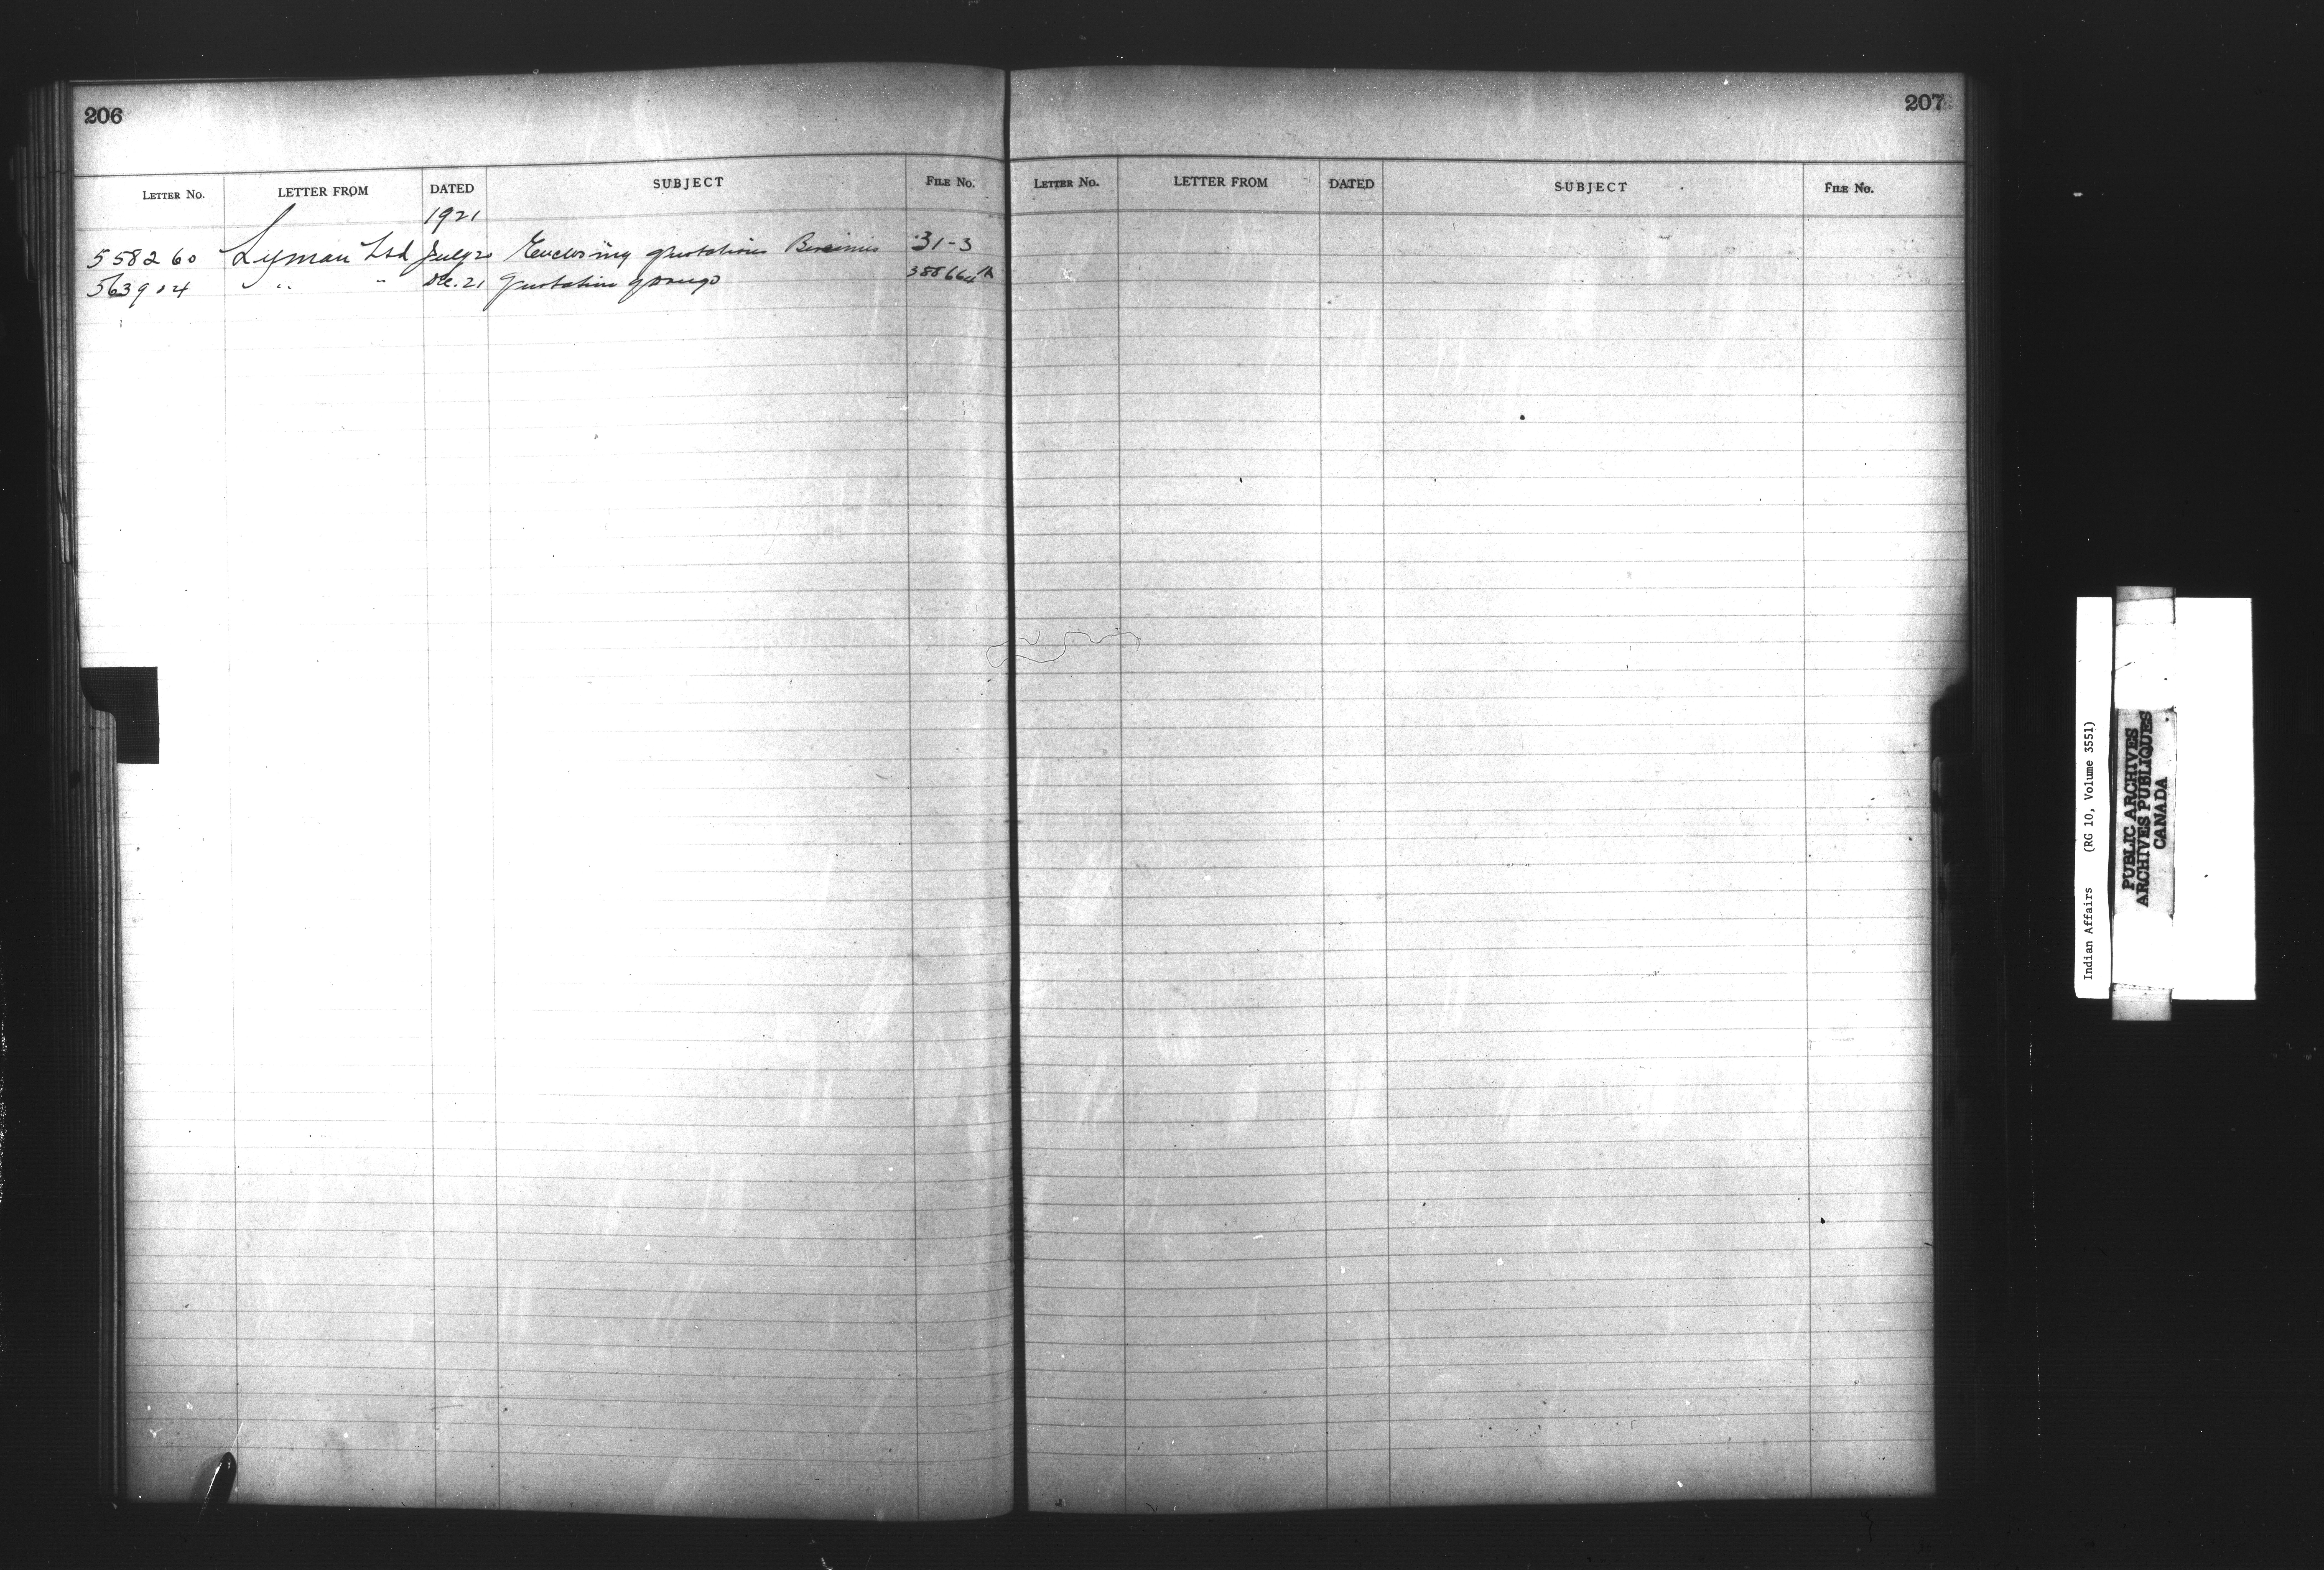 206
LETTER NO. LETTER FROM DATED SUBJECT FILE No.
1921
558260 Lyman Ltd July 20 Enclosing quotations 31-3
563904 " " De. 21 quotation g drugs
207
LETTER No. LETTER FROM DATED SUBJECT FILE No.
Indian Affairs (RG 10, Volume 3551)
PUBLIC ARCHIVES
ARCHIVES PUBLIQUES
CANADA